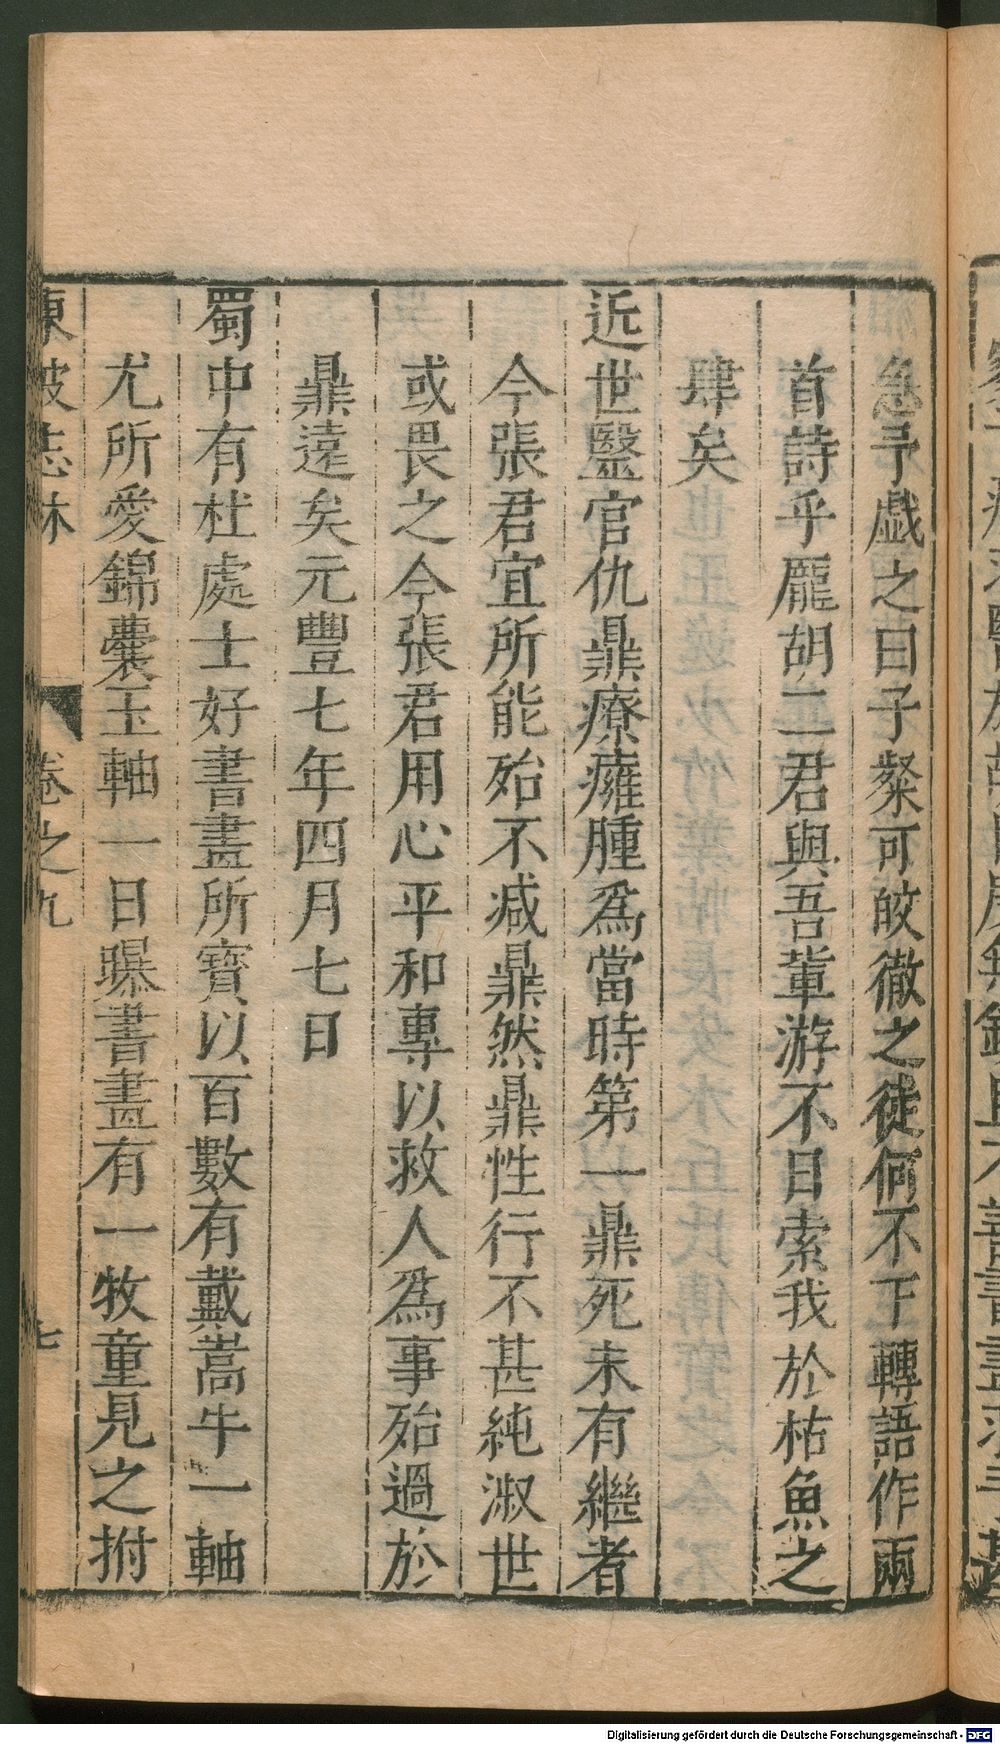 急予戯之曰子粲可皎徹之徒何不下轉語作兩
首詩乎龎胡二君與吾輩游不日索我於枯魚之
肆矣
近世醫官仇鼎療癰腫爲當時第一鼎死未有繼者
今張君宜所能殆不减鼎然鼎性行不甚純淑世
或畏之今張君用心平和專以救人爲事殆過於
鼎遠矣元豐七年四月七日
蜀中有杜處士好書畫所寳以百數有戴嵩牛一軸
尤所愛錦囊玉軸一日曝書畫有一牧童見之拊
東坡志林 卷之九 七
Digitalisierung gefördert durch die Deutsche Forschungsgemeinschaft - DFG